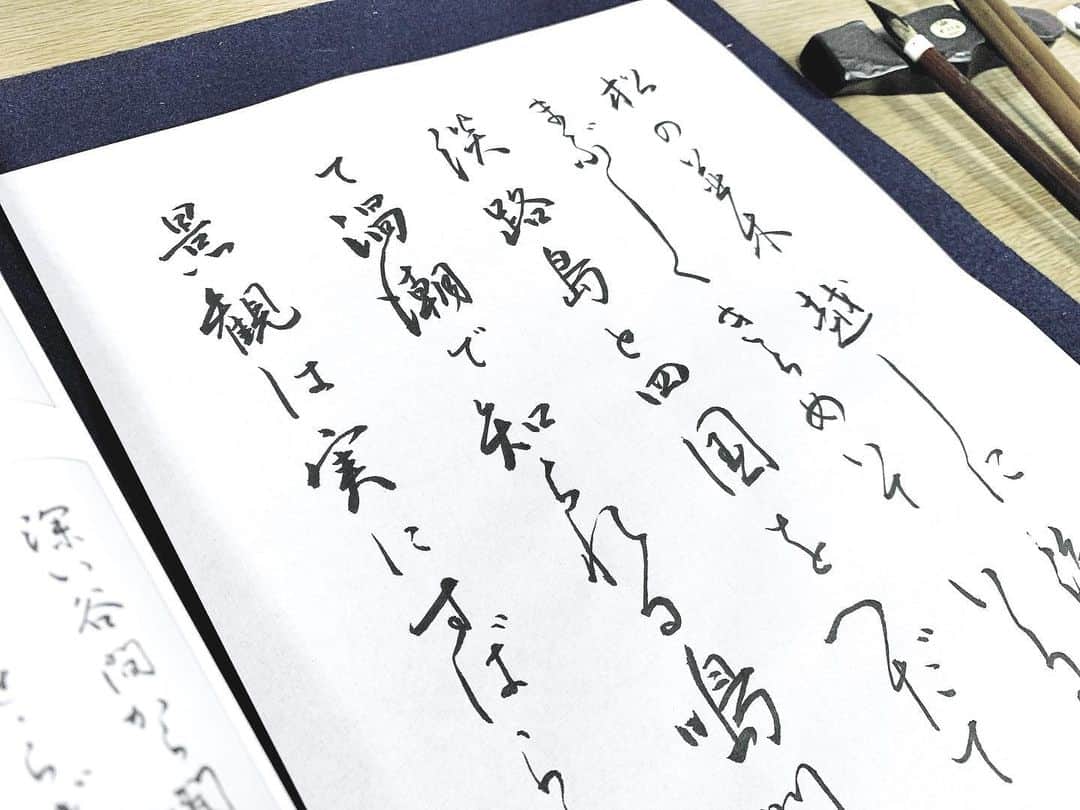 松の並木越しに
まぶしくきらめいて
淡路島と四国をへだて
て渦潮で知られる鳴門
景観は実にすばら
深い谷間から聞